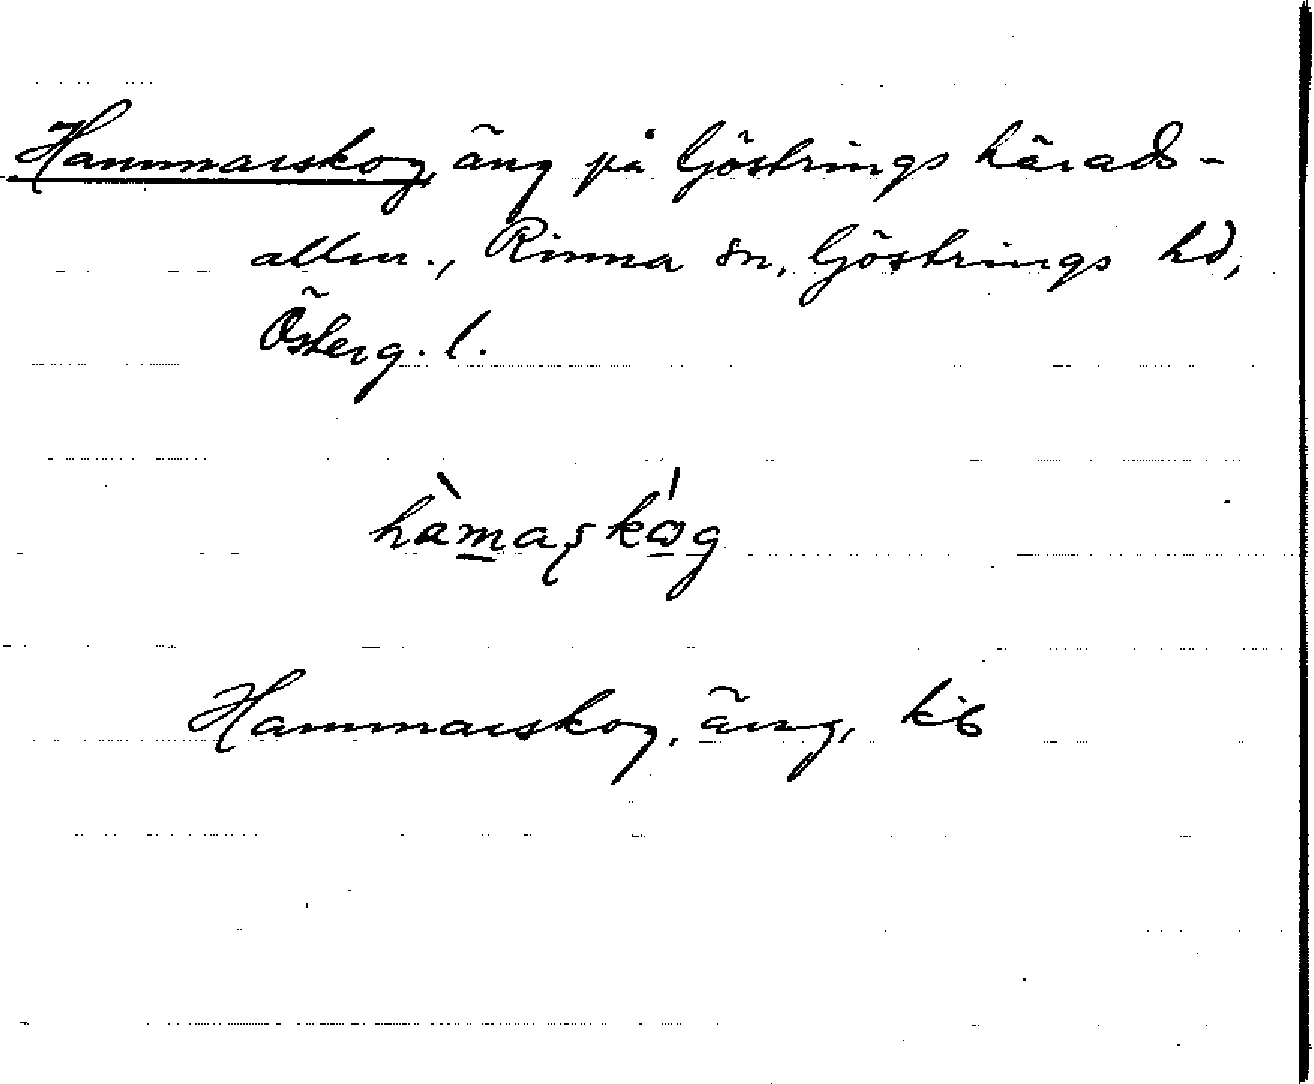 Hammarskog, äng på Göstrings härads-
allm., Rinna sn, Göstrings hd,
Österg. l.
hàmaskóg
Hammarskog, äng,